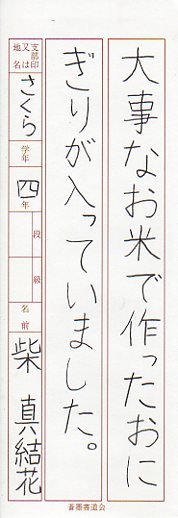 大事なお米で作ったおに
ぎりが入っていました。
支部印又は地名 さくら 学年 四年 段 級 名前 柴 真結花
蒼墨書道会